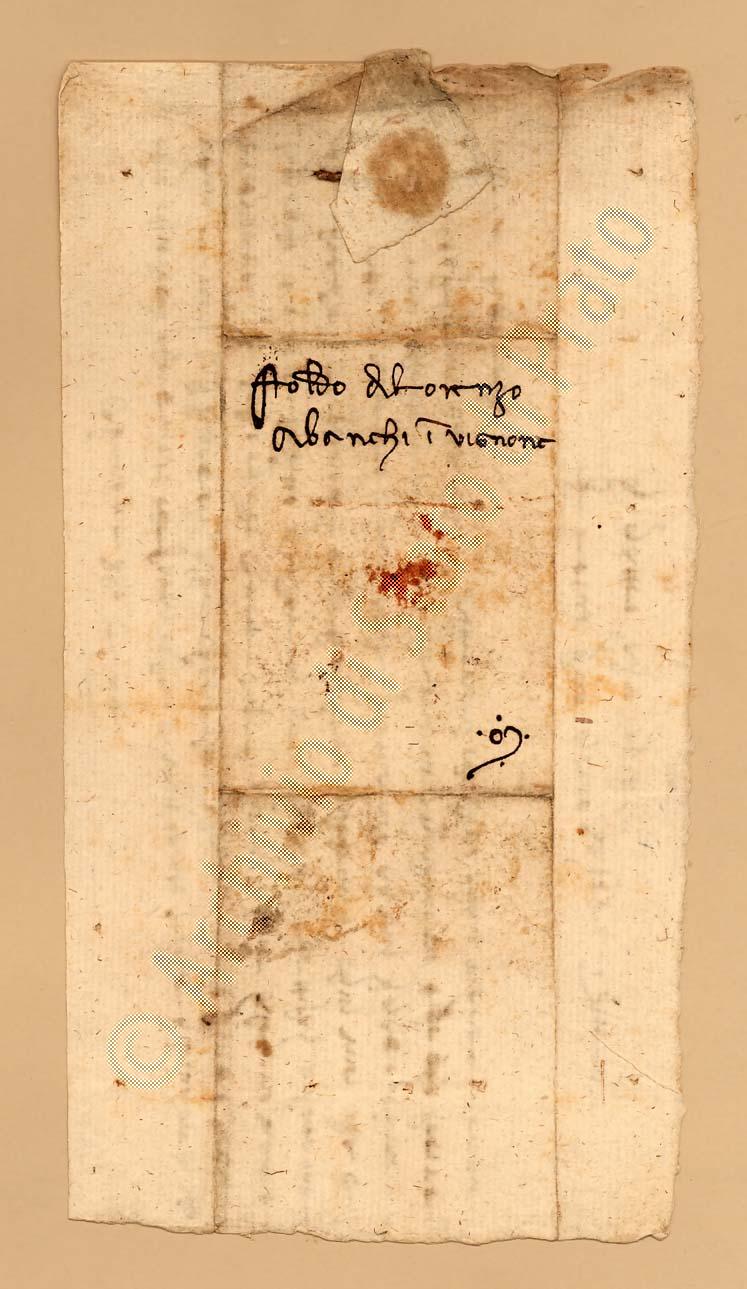 Stoldo di Lorenzo
a banchi ī vignone
© Archivio di Stato di Prato